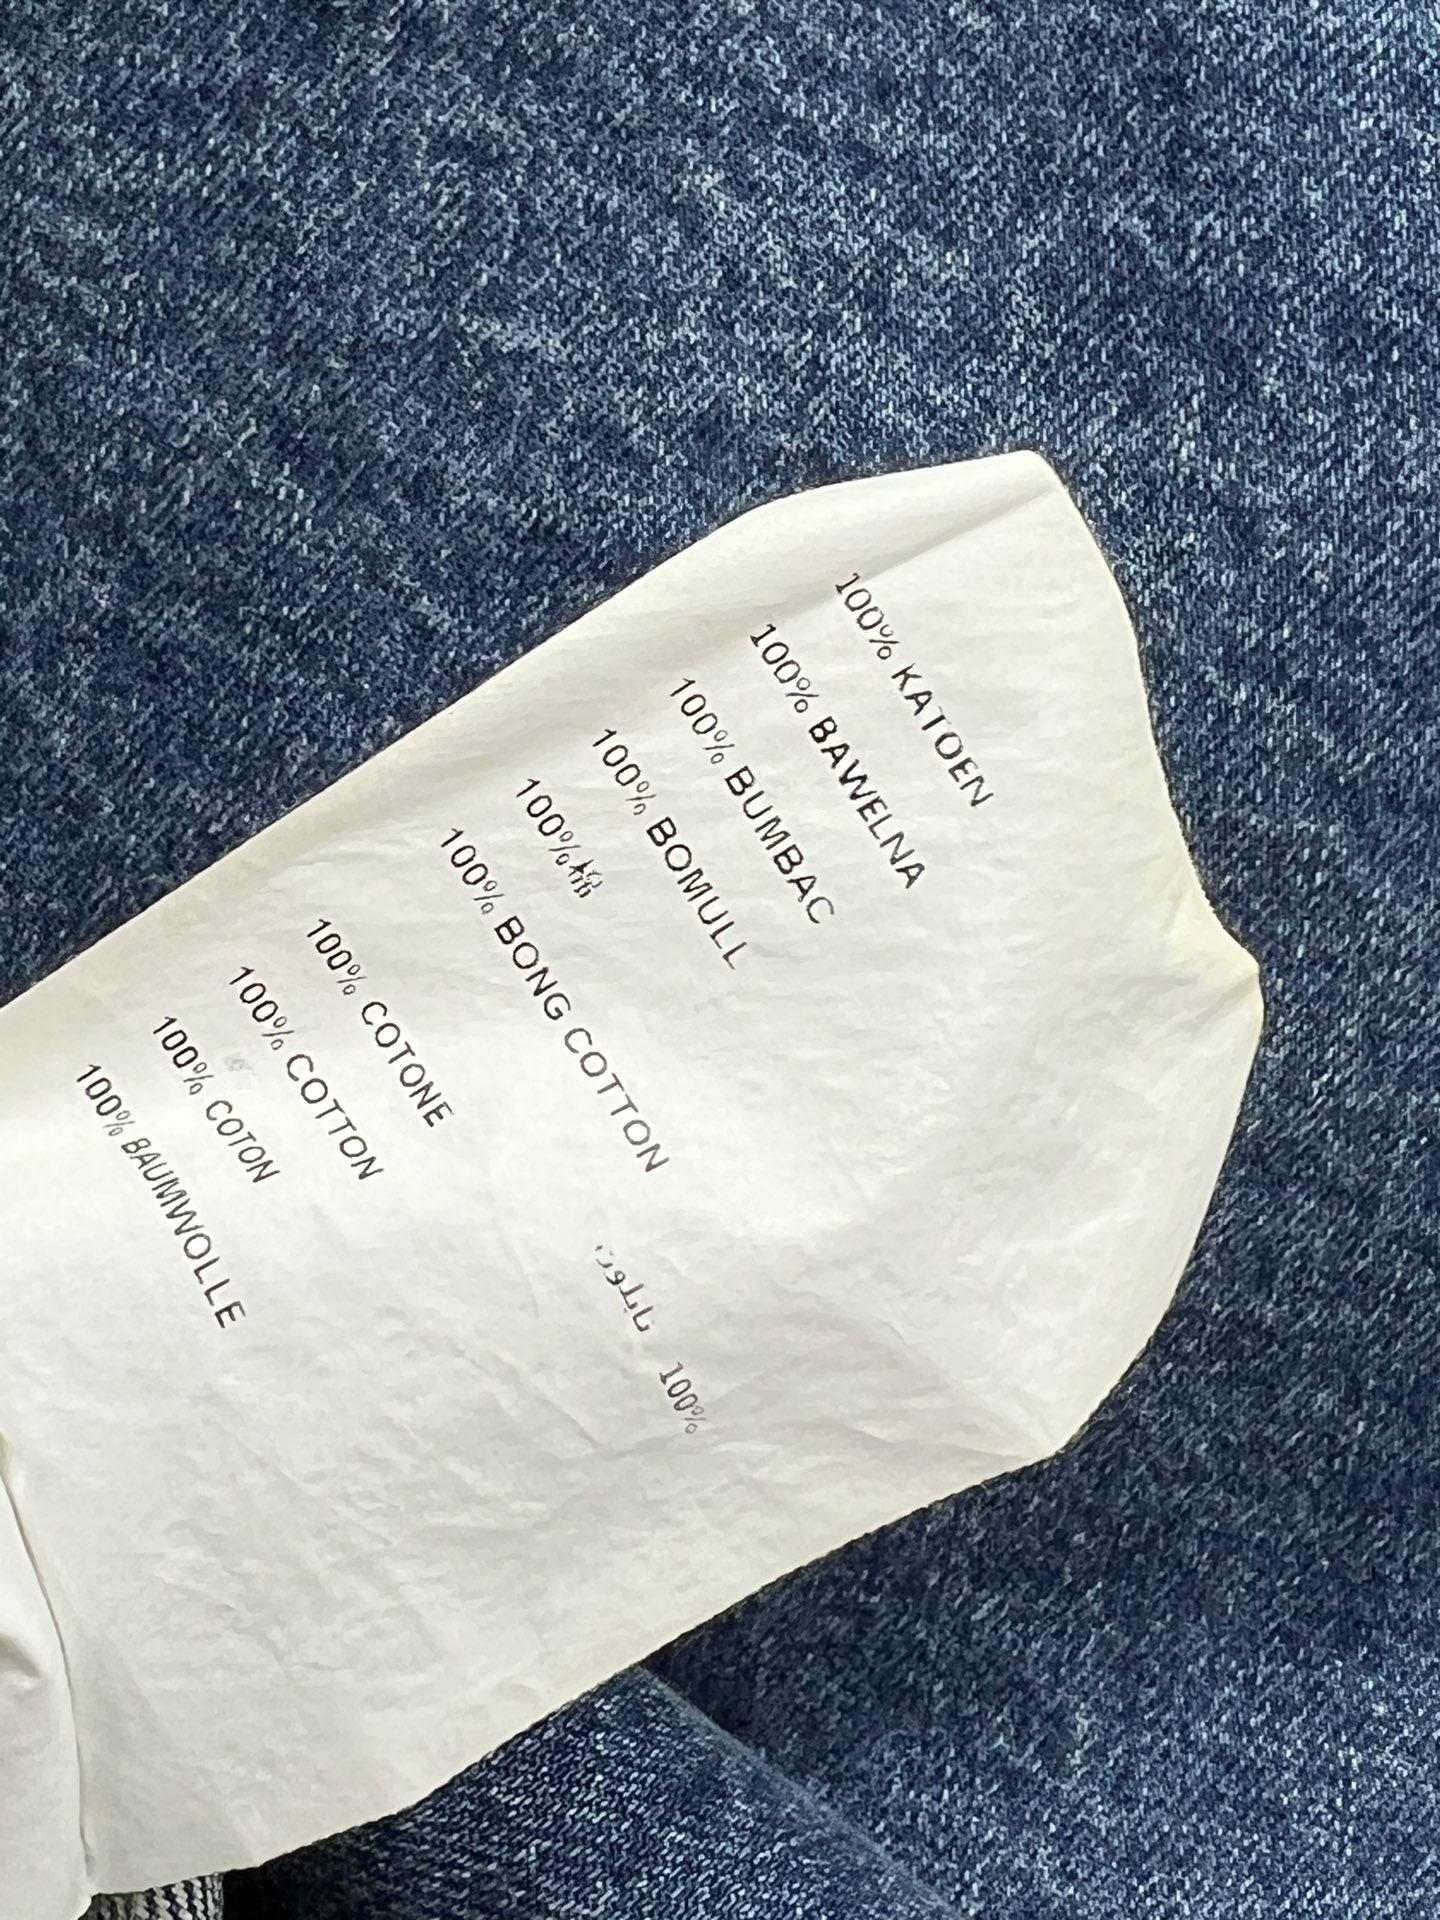 100% KATOEN
100% BAWELNA
100% BUMBAC
100% BOMULL
100%棉
100% BONG COTTON
100%
100% COTONE
100% COTTON
100% COTON
100% BAUMWOLLE